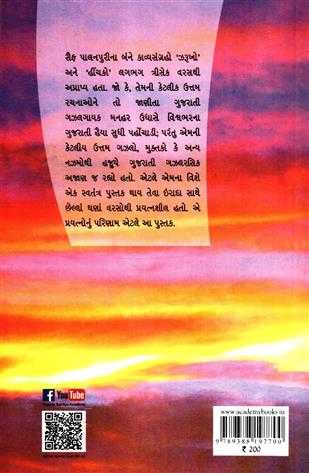 સૈફ પાલનપુરીના બંને કાવ્યસંગ્રહો 'ઝરૂખો'
અને 'હીંચકો' લગભગ ત્રીસેક વરસથી
અપ્રાપ્ય હતા. જો કે, તેમની કેટલીક ઉત્તમ
રચનાઓને તો જાણીતા ગુજરાતી
ગઝલગાયક મનહર ઉધાસે વિશ્વભરના
ગુજરાતી હૈયા સુધી પહોંચાડી; પરંતુ એમની
કેટલીય ઉત્તમ ગઝલો, મુક્તકો કે અન્ય
નઝમોથી હજુયે ગુજરાતી ગઝલરસિક
અજાણ જ રહ્યો હતો. એટલે એમના વિશે
એક સ્વતંત્ર પુસ્તક થાય તેવા ઇરાદા સાથે
છેલ્લાં ઘણાં વરસોથી પ્રયત્નશીલ હતો. એ
પ્રયત્નોનું પરિણામ એટલે આ પુસ્તક.
f YouTube
www.academybooks.in
9789388197700
₹ 200